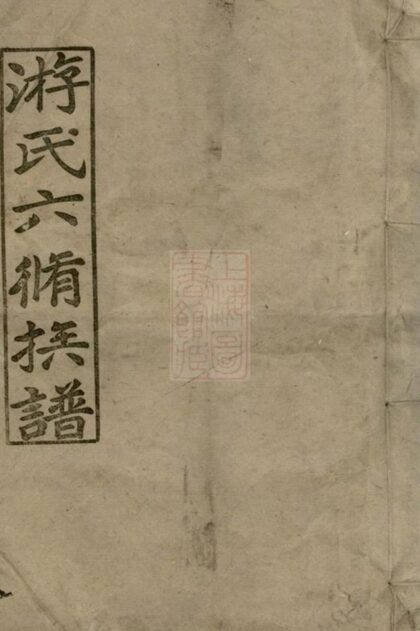 游氏六脩族譜
上海圖書館藏